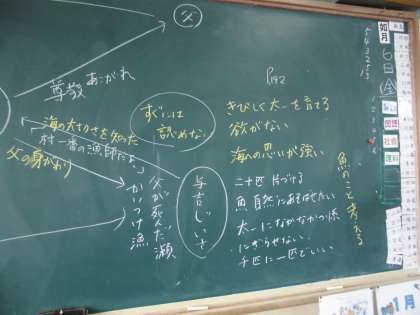 父
尊敬 あこがれ
海の大切さを知った
村一番の漁師だよ
父の身がわり
すぐには
認めない
父が死んだ瀬
かいつけ漁
与吉じいさ
P192
きびしく太一を育てる
欲がない
海への思いが強い
二十匹 片づける
魚 自然にあそばせたい
太一に
にぎらせない
千匹に一匹でいい
魚のこと考える
如月
6
日
(金)
国語
社会
理科
1月